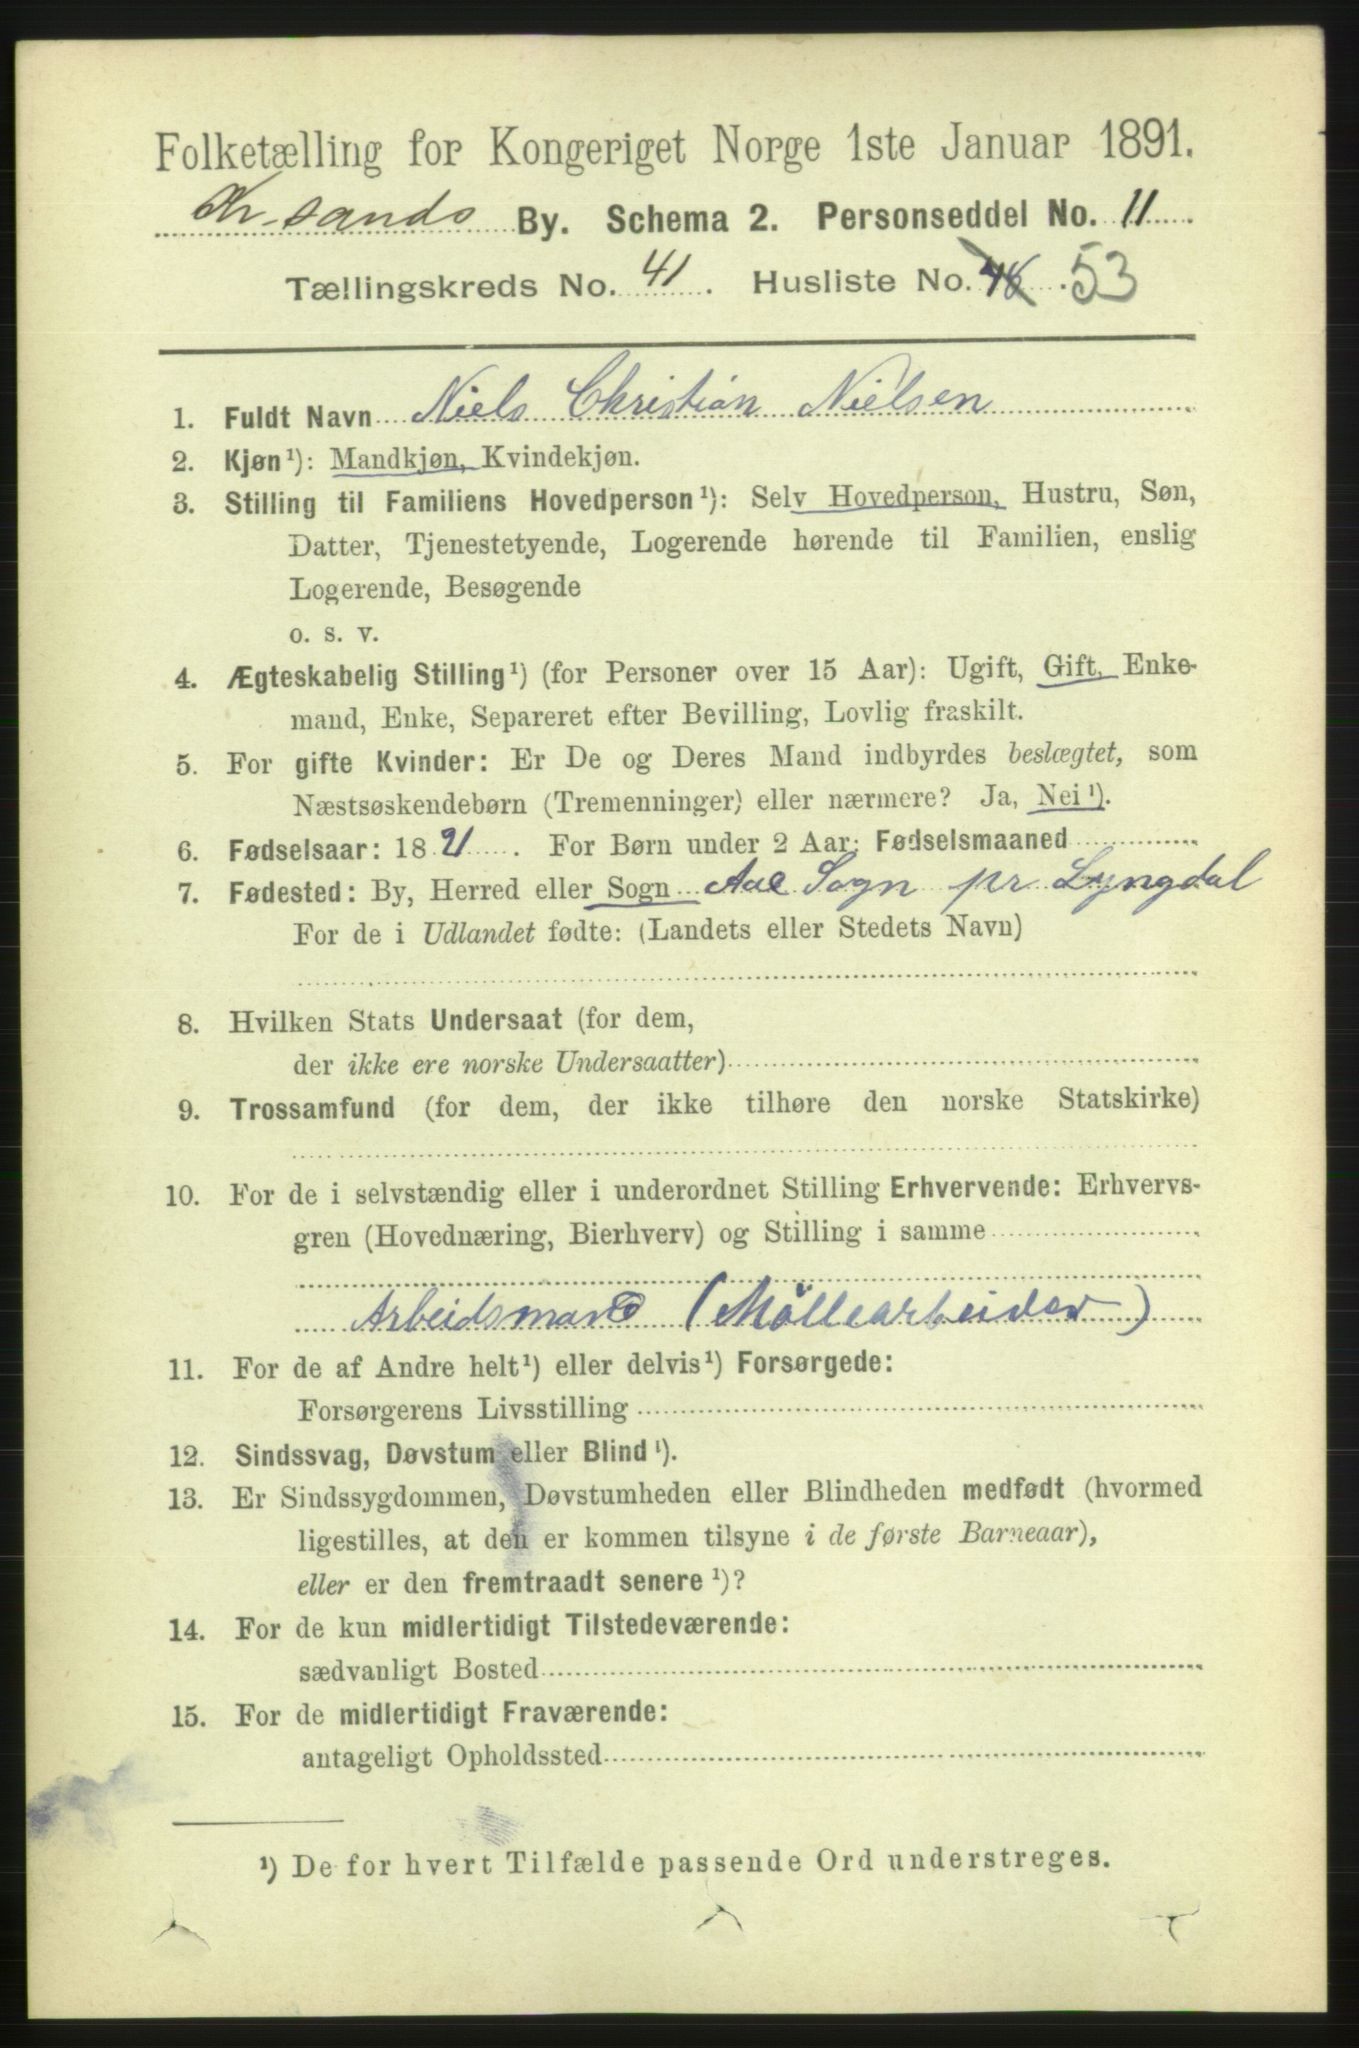 Folketælling for Kongeriget Norge 1ste Januar 1891.
Kr.sands By. Schema 2. Personseddel No. 11
Tællingskreds No. 41. Husliste No. 48. 53
1. Fuldt Navn Niels Christian Nielsen
2. Kjøn¹): Mandkjøn, Kvindekjøn.
3. Stilling til Familiens Hovedperson¹): Selv Hovedperson, Hustru, Søn,
Datter, Tjenestetyende, Logerende hørende til Familien, enslig
Logerende, Besøgende
o. s. v.
4. Ægteskabelig Stilling¹) (for Personer over 15 Aar): Ugift, Gift, Enke-
mand, Enke, Separeret efter Bevilling, Lovlig fraskilt.
5. For gifte Kvinder: Er De og Deres Mand indbyrdes beslægtet, som
Næstsøskendebørn (Tremenninger) eller nærmere? Ja, Nei¹).
6. Fødselsaar: 1821. For Børn under 2 Aar: Fødselsmaaned
7. Fødested: By, Herred eller Sogn Aae Sogn pr Lyngdal
For de i Udlandet fødte: (Landets eller Stedets Navn)
8. Hvilken Stats Undersaat (for dem,
der ikke ere norske Undersaatter)
9. Trossamfund (for dem, der ikke tilhøre den norske Statskirke)
10. For de i selvstændig eller i underordnet Stilling Erhvervende: Erhvervs-
gren (Hovednæring, Bierhverv) og Stilling i samme
Arbeidsmand (Möllearbeider)
11. For de af Andre helt¹) eller delvis¹) Forsørgede:
Forsørgerens Livsstilling
12. Sindssvag, Døvstum eller Blind¹).
13. Er Sindssygdommen, Døvstumheden eller Blindheden medfødt (hvormed
ligestilles, at den er kommen tilsyne i de første Barneaar),
eller er den fremtraadt senere¹)?
14. For de kun midlertidigt Tilstedeværende:
sædvanligt Bosted
15. For de midlertidigt Fraværende:
antageligt Opholdssted
¹) De for hvert Tilfælde passende Ord understreges.